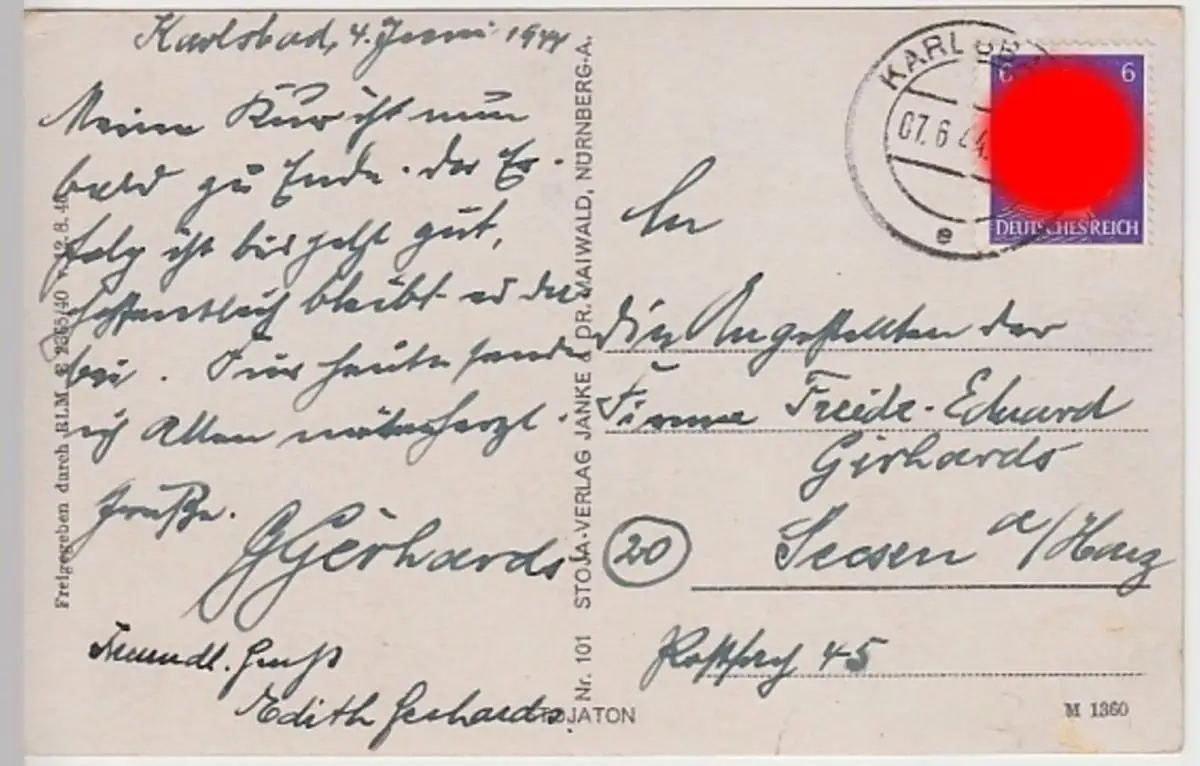 Karlsbad, 4. Juni 1944
Meine Kur ist nun
bald zu Ende. der Er-
folg ist bis jetzt gut,
hoffentlich bleibt es da-
bei. Für heute sende
ich Allen
Grüße.
GGerhards
Freundl. Gruß
Edith Gerhards.
Freigegeben durch RLM
12. 8. 40
Nr. 101 STOJA-VERLAG JANKE & DR. MAIWALD, NÜRNBERG-A.
STOJATON
07.6.44
e
6
6
DEUTSCHES REICH
An
die Angestellten der
Firma Friedr. Eduard
Gerhards
20
Seesen a/Harz
Postfach 45
M 1360